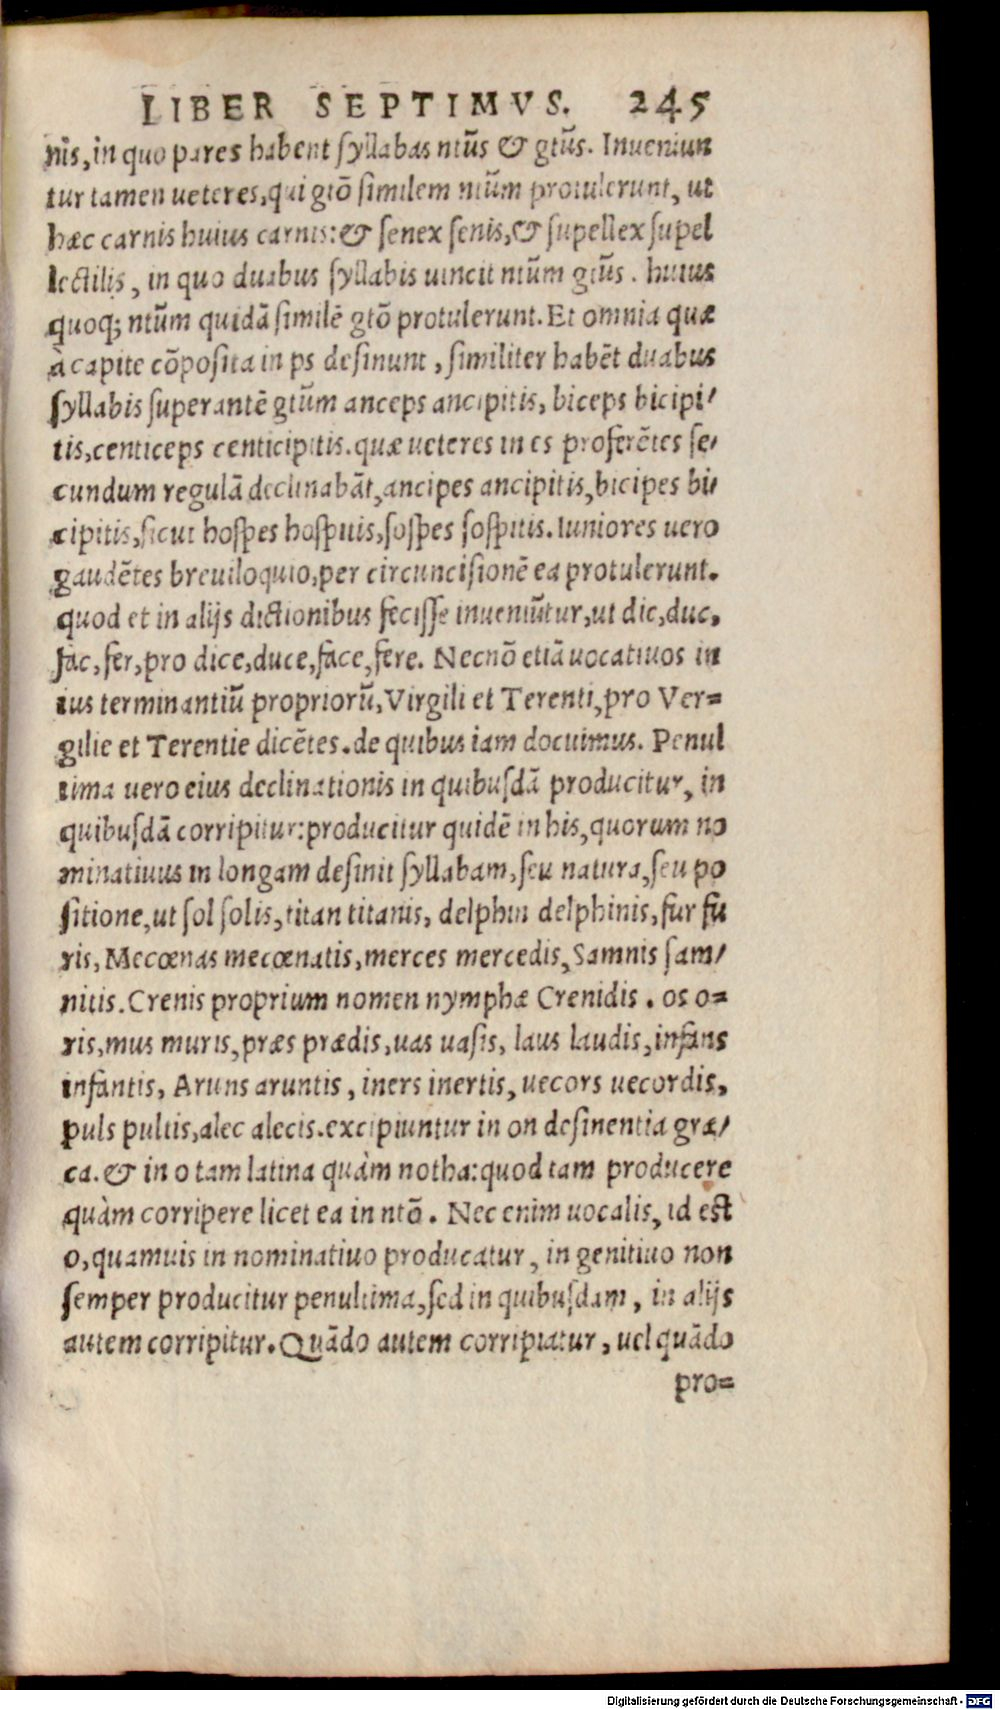 LIBER SEPTIMVS. 245
nis, in quo pares habent ſyllabas ntũs & gtũs. Inueniun
tur tamen ueteres, qui gtõ ſimilem ntũm protulerunt, ut
hæc carnis huius carnis: & ſenex ſenis, & ſupellex ſupel
lectilis, in quo duabus ſyllabis uincit ntũm gtũs. huius
quoq; ntũm quidã ſimilẽ gtõ protulerunt. Et omnia quæ
à capite cõpoſita in ps deſinunt, ſimiliter habẽt duabus
ſyllabis ſuperantẽ gtũm anceps ancipitis, biceps bicipi/
tis, centiceps centicipitis. quæ ueteres in es proferẽtes ſe/
cundum regulã declinabãt, ancipes ancipitis, bicipes bi/
cipitis, ſicut hoſpes hoſpitis, ſoſpes ſoſpitis. Iuniores uero
gaudẽtes breuiloquio, per circunciſionẽ ea protulerunt.
quod et in alijs dictionibus feciſſe inueniũtur, ut dic, duc,
fac, fer, pro dice, duce, face, fere. Necnõ etiã uocatiuos in
ius terminantiũ propriorũ, Virgili et Terenti, pro Ver=
gilie et Terentie dicẽtes. de quibus iam docuimus. Penul
tima uero eius declinationis in quibuſdã producitur, in
quibuſdã corripitur: producitur quidẽ in his, quorum no
minatiuus in longam deſinit ſyllabam, ſeu natura, ſeu po
ſitione, ut ſol ſolis, titan titanis, delphin delphinis, fur fu
ris, Mecœnas mecœnatis, merces mercedis, Samnis ſam/
nitis. Crenis proprium nomen nymphæ Crenidis. os o=
ris, mus muris, præs prædis, uas uaſis, laus laudis, infans
infantis, Aruns aruntis, iners inertis, uecors uecordis,
puls pultis, alec alecis. excipiuntur in on deſinentia græ/
ca. & in o tam latina quàm notha: quod tam producere
quàm corripere licet ea in ntõ. Nec enim uocalis, id eſt
o, quamuis in nominatiuo producatur, in genitiuo non
ſemper producitur penultima, ſed in quibuſdam, in alijs
autem corripitur. Quãdo autem corripiatur, uel quãdo
pro=
Digitalisierung gefördert durch die Deutsche Forschungsgemeinschaft - DFG